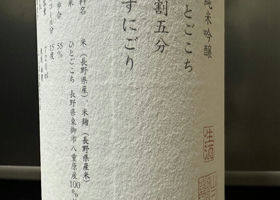 純米吟醸
とごこち
割五分
すにごり
生酒
料名 米(長野県産)・米麹(長野県産米)
米 ひとごこち 長野県東御市八重原産100%
合 55%
分 15度